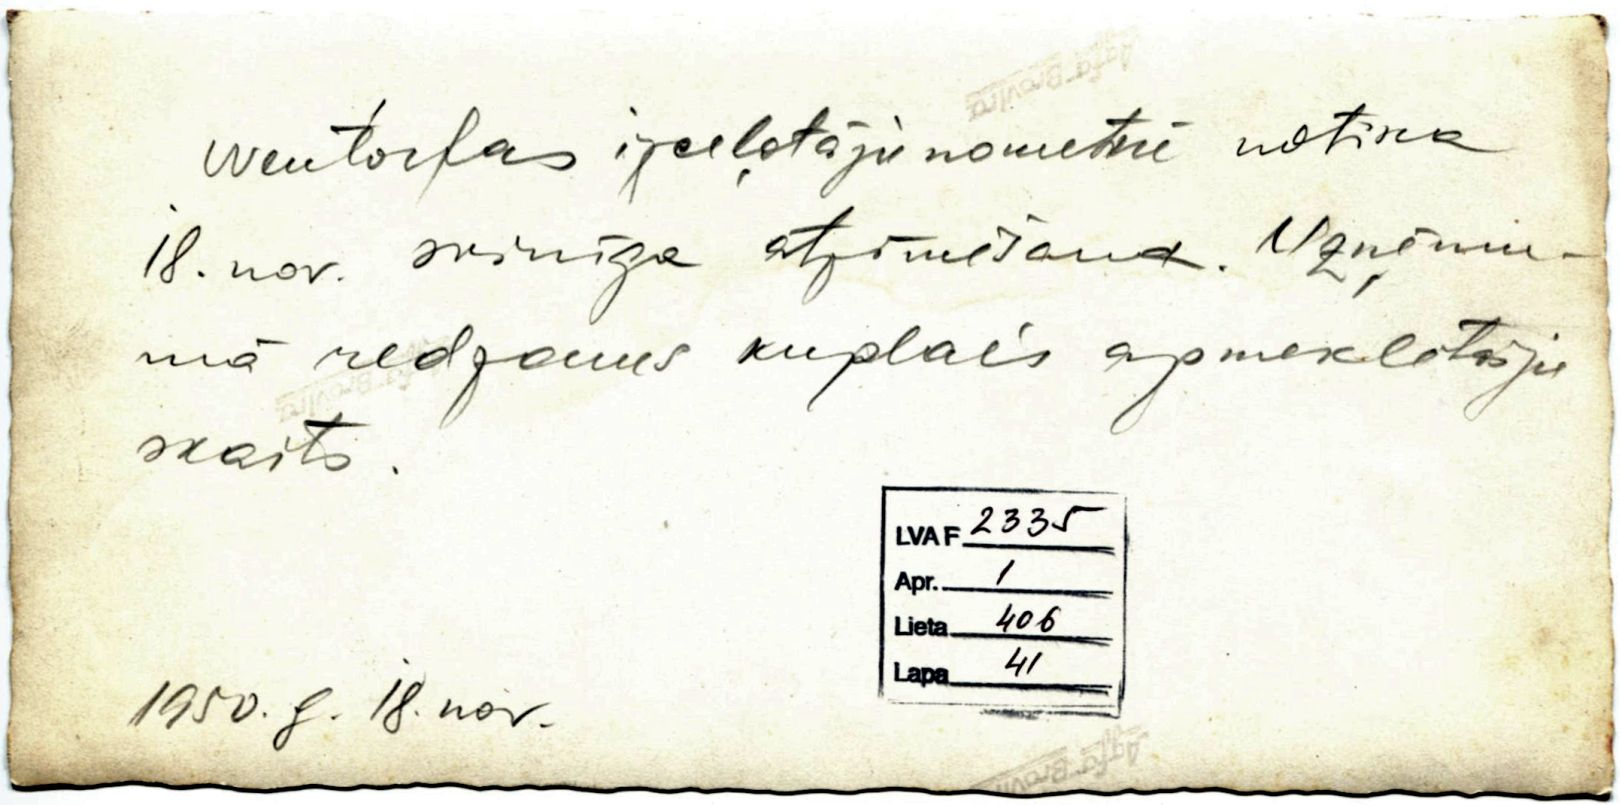 Wentorfas izceļotāju nometnē notika
18. nov. svinīga atzīmēšana. Uzņēmu-
mā redzams kuplais apmeklētāju
skaits.
LVA F 2335
Apr. 1
Lieta 406
Lapa 41
1950. g. 18. nov.
Agfa-Brovira
Agfa-Brovira
Agfa-Brovira